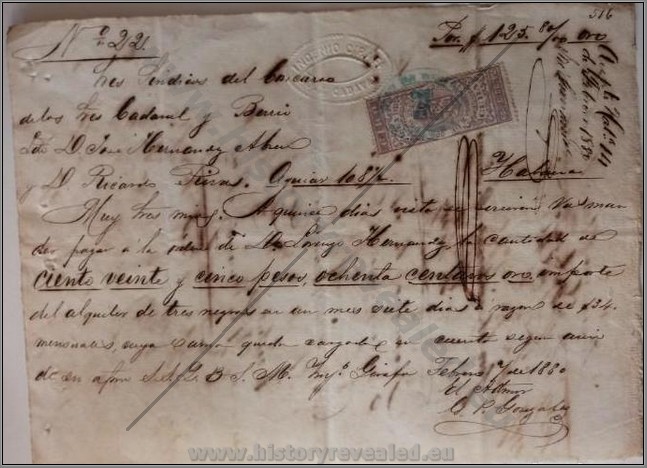 516
No. 22.
Por $ 125 80/00 oro
Sres Síndicos del Concurso
de los Sres Cadaval y Berrio
D. José Hernandez Abreu
y D. Ricardo Aguiar 108½
Habana
Muy Sres mios: A quince dias vista se servirán Vds man
dar pagar a la orden de D. Lorenzo Hernandez la cantidad de
ciento veinte y cinco pesos, ochenta centavos oro, importe
del alquiler de tres negros en un mes siete dias á razon de $34.
mensuales, cuya suma queda cargada en cuenta segun avi
de en a/on S. S. Q. B. S. M. Febrero 7 de 1880
el Admor
Gonzalez
INGENIO
www.historyrevealed.eu